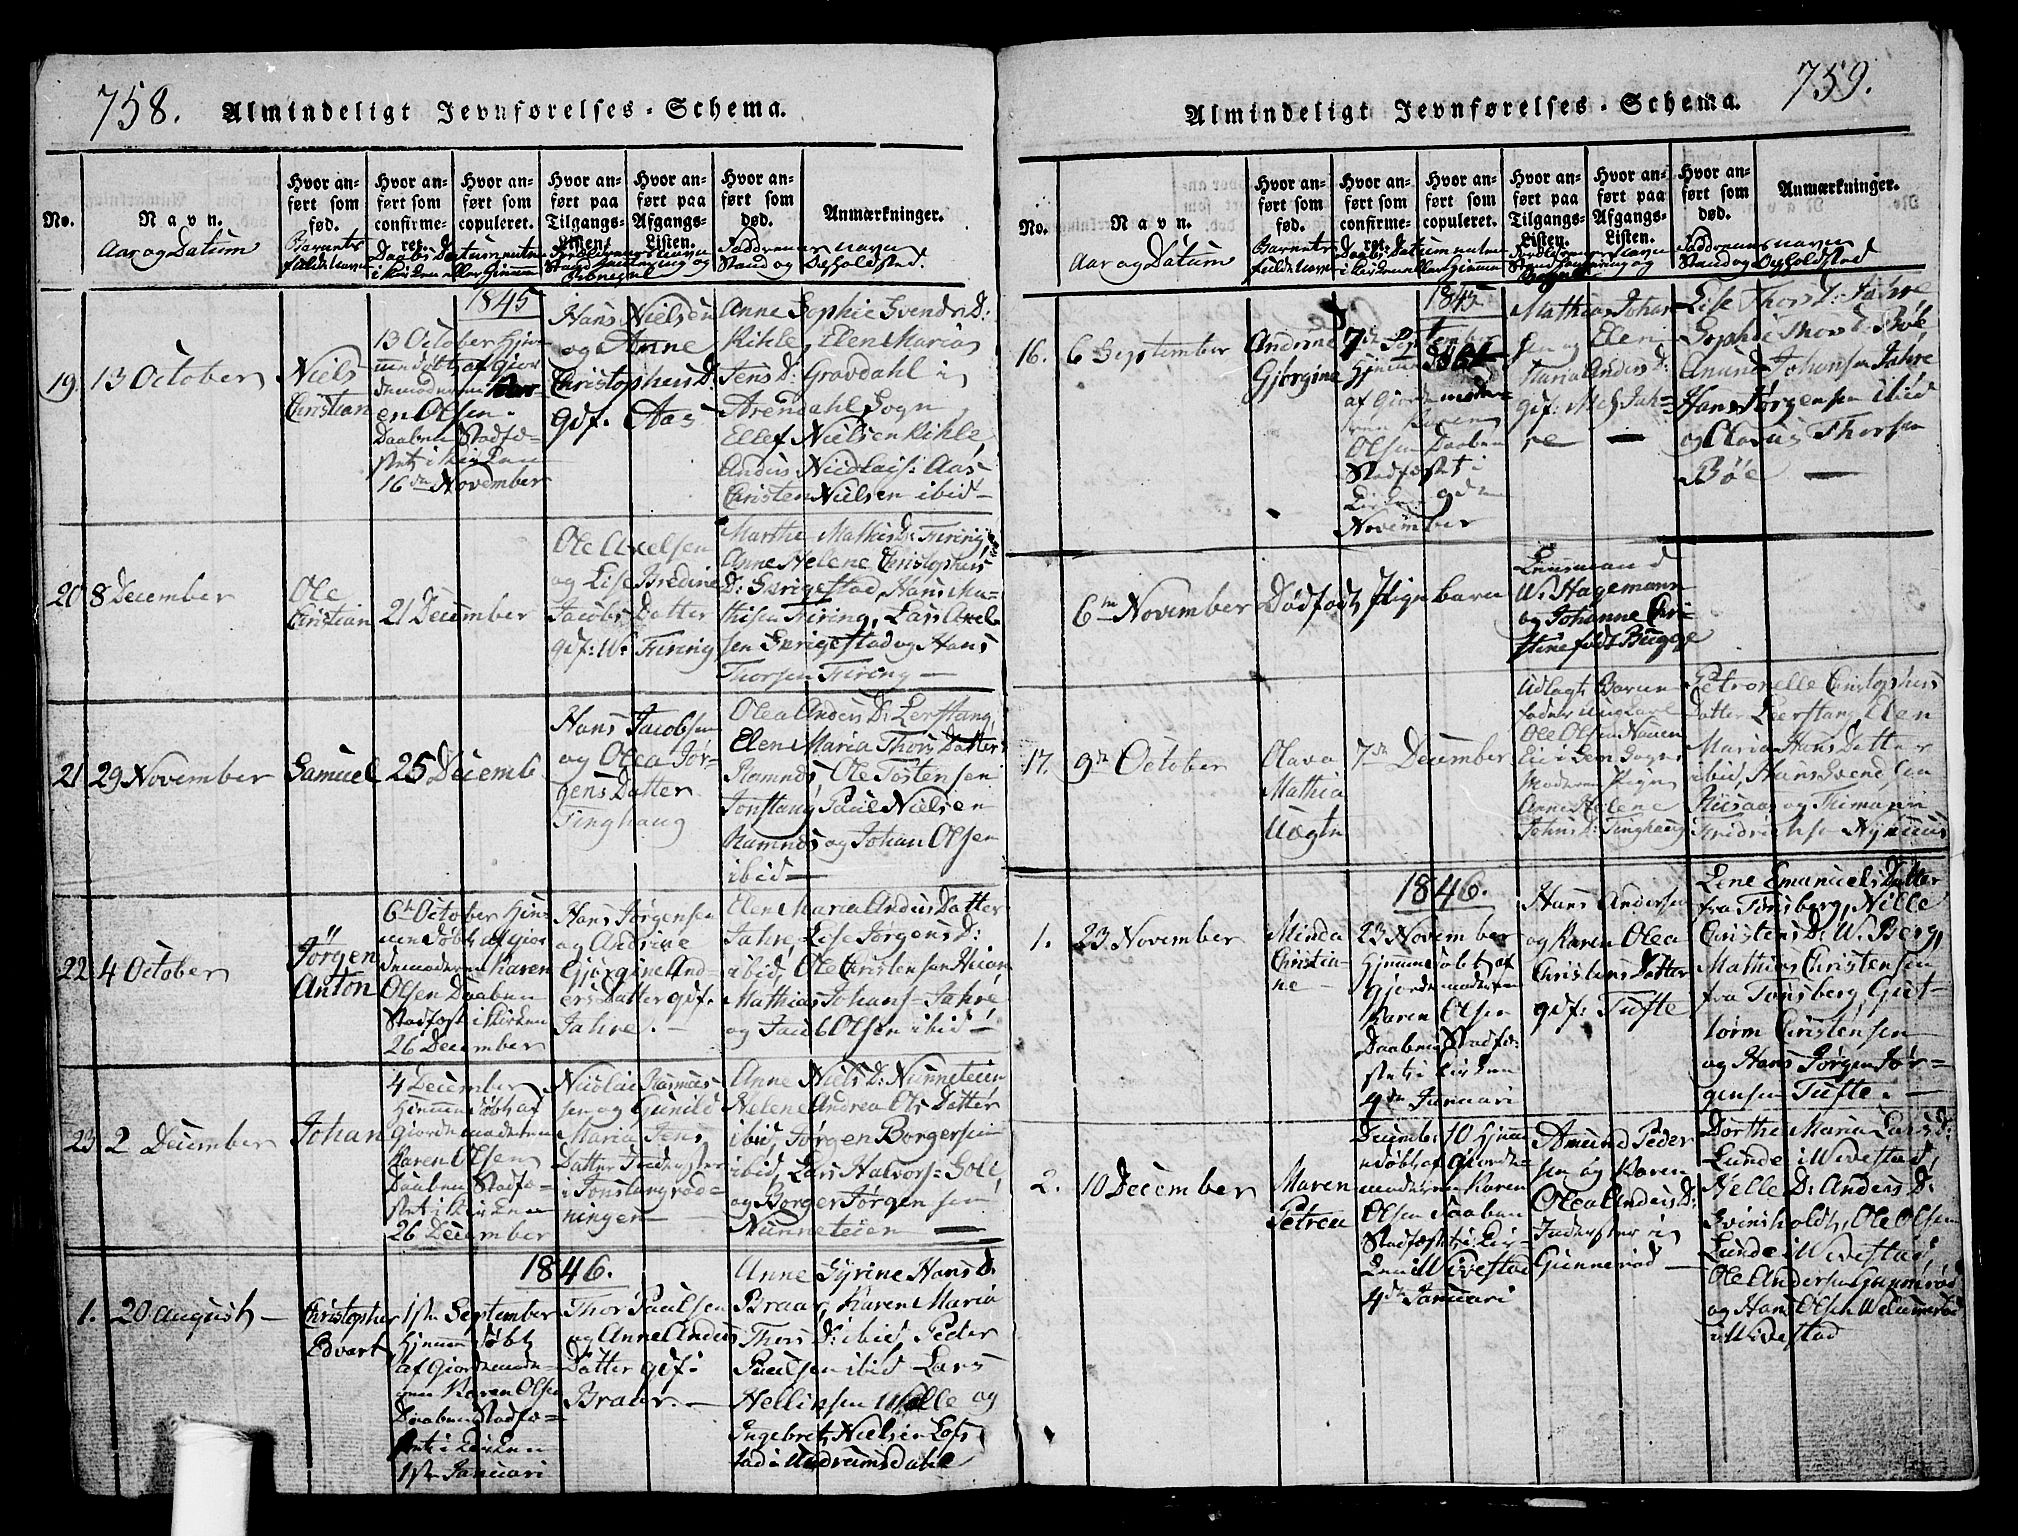 758.
Almindeligt Jevnførelses-Schema.
No.
Navn.
Aar og Datum
Hvor anført som født.
Barnets fulde Navn
Hvor anført som confirmeret.
Hvor anført som copuleret.
Daabs Datum enten i Kirken eller Hjemme
Hvor anført paa Tilgangs-Listen.
Hvor anført paa Afgangs-Listen.
Forældrenes Navne Stand Handtering og
Hvor anført som død.
Anmærkninger.
Faddrenes navne
Stand og Opholdsted.
1845
19.
13 October
Niels
Christian
13 October Hjem-
medøbt af Gjor
demoderen Kar-
en Olsen.
Daaben Stadfæ-
stet i Kirken
16de November
Hans Nielsen
og Anne
Christophers D.
gdf. Aas
Anne Sophie Svends D:
Kihle, Elen Maria
Jens D: Gravdahl i
Arendahl Sogn
Ellef Nielsen Kihle
Andus Nicolais: Aas
Christen Nielsen ibid —
20
8 December
Ole
Christian
21 December
Ole Axelsen
og Lise Bredine
Jacobs Datter
gdf: W: Firing
Marthe Mathis D: Firing,
Anne Helene Christophers
D: Skrigestad, Hans Ma-
thisen Firing, Lars Axel-
sen Skrigestad og Hans
Thorsen Firing —
21
29 November
Samuel
25 Decemb
Hans Jacobsen
og Olea Jør-
gens Datter
Tinghaug
Olea Anders D: Lerstang,
Elen Maria Thors Datter
Ramnæs Ole Tostensen
Jonstang Paul Nielsen
Ramnæs og Johan Olsen
ibid —
22
4 October
Jørgen
Anton
6te October Hjem-
medøbt af Gjor
demoderen Karen
Olsen Daaben
Stadfæst i Kirken
26 December
Hans Jørgensen
og Andrine
Gjørgine And-
ers Datter gdf.
Jahre. —
Elen Maria Andus Datter
Jahre, Lise Jørgens D:
ibid, Ole Christensen
Mathias Johans: Jahre
og Jacob Olsen ibid —
23
2 December
Johan
4 December
Hjemmedøbt af
Gjordemoderen
Karen Olsen
Daaben Stadfæ-
stet i Kirken
26 December
Nicolai Rasmus
sen og Gunild
Maria Jens
Datter Inderster
i Jonstangrød-
ningen —
Anne Niels D: Nunneteien
Helene Andrea Ols Datter
ibid, Jørgen Borgersen
ibid, Lars Halvors: Goli
og Borger Jørgensen
Nunneteien —
1846.
1.
20 August —
Christopher
Edvart
1ste September
Hjemmedøbt
af Gjordemode-
ren Karen Olsen
Daaben Stadfæ-
stet i Kirken
1ste Januari
Thor Paulsen
og Anne Andus
Datter gdf:
Braar. —
Anne Gyrine Hans D:
Braar, Karen Maria
Thors D: ibid Peder
Paulsen ibid Lars
Helliksen og
Ingebret Nielsen
tad i Andebu
759.
Almindeligt Jevnførelses-Schema.
No.
Navn.
Aar og Datum
Hvor anført som født.
Barnets fulde Navn
Hvor anført som confirmeret.
Hvor anført som copuleret.
Daabs Datum enten i Kirken eller Hjemme
Hvor anført paa Tilgangs-Listen.
Hvor anført paa Afgangs-Listen.
Hvor anført som død.
Anmærkninger.
Faddrenes navne
Stand og Opholdsted
1845
16.
6 September
Anderine
Gjørgine
7de September
Hjemmedøbt
af Giordemode-
ren Karen
Olsen Daaben
Stadfæstet i
Kirken 9de
November
Mathias Johan
sen og Elen
Maria Anders D:
gdf: Jah-
re —
Lise Thors D: Jahre
Sophie Thors D: Bøe
Amund Johansen Jahre
Hans Jørgensen ibid
og Olavus Thorsen
Bøe —
6te November
Dødfødt Pigebarn
Lensmand
W. Hagemann
og Johanne Chri-
stine født Bugge
17.
9de October
Olava
Mathia
7de December
Udlagt Barne
fader Ungkarl
Ole Olsen
i Sem Sogn
Moderen Pigen
Anne Helene
Johns D: Tinghaug
Petronelle Christophers
Datter Leerstang, Elen
Maria Hans Datter
ibid, Hans Svendsen
og
Fridrichsen
1846.
1.
23 November
Minda
Christia-
ne —
23 November
Hjemmedøbt af
Gjordemoderen
Karen Olsen
Daaben Stadfæ-
stet i Kirken
4de Januari
Hans Andersen
og Karen Olea
Christens Datter
gdf: Tufte
Lene Emanuels Datter
fra Tønsberg, Nille
Christens D: W. Berg,
Mathias Christensen
fra Tønsberg, Gut-
torm Christensen
og Hans Jørgen Jør-
gensen Tufte. —
2.
10 December
Maren
Petrea
Decemb: 10 Hjem
medøbt af Giorde-
moderen Karen
Olsen Daaben
Stadfæstet i Kir-
ken i Wivestad
4de Januari
Amund Peder
sen og Karen
Olea Anders D:
Inderster i
Gunnerød —
Dorthe Maria Lars D:
Lunde i Wivestad,
Nelle D: Anders D:
Svinsholdt, Ole Olsen
Lunde i Wivestad,
Ole Andersen Gunnerød
og Hans Olsen
i Wivestad